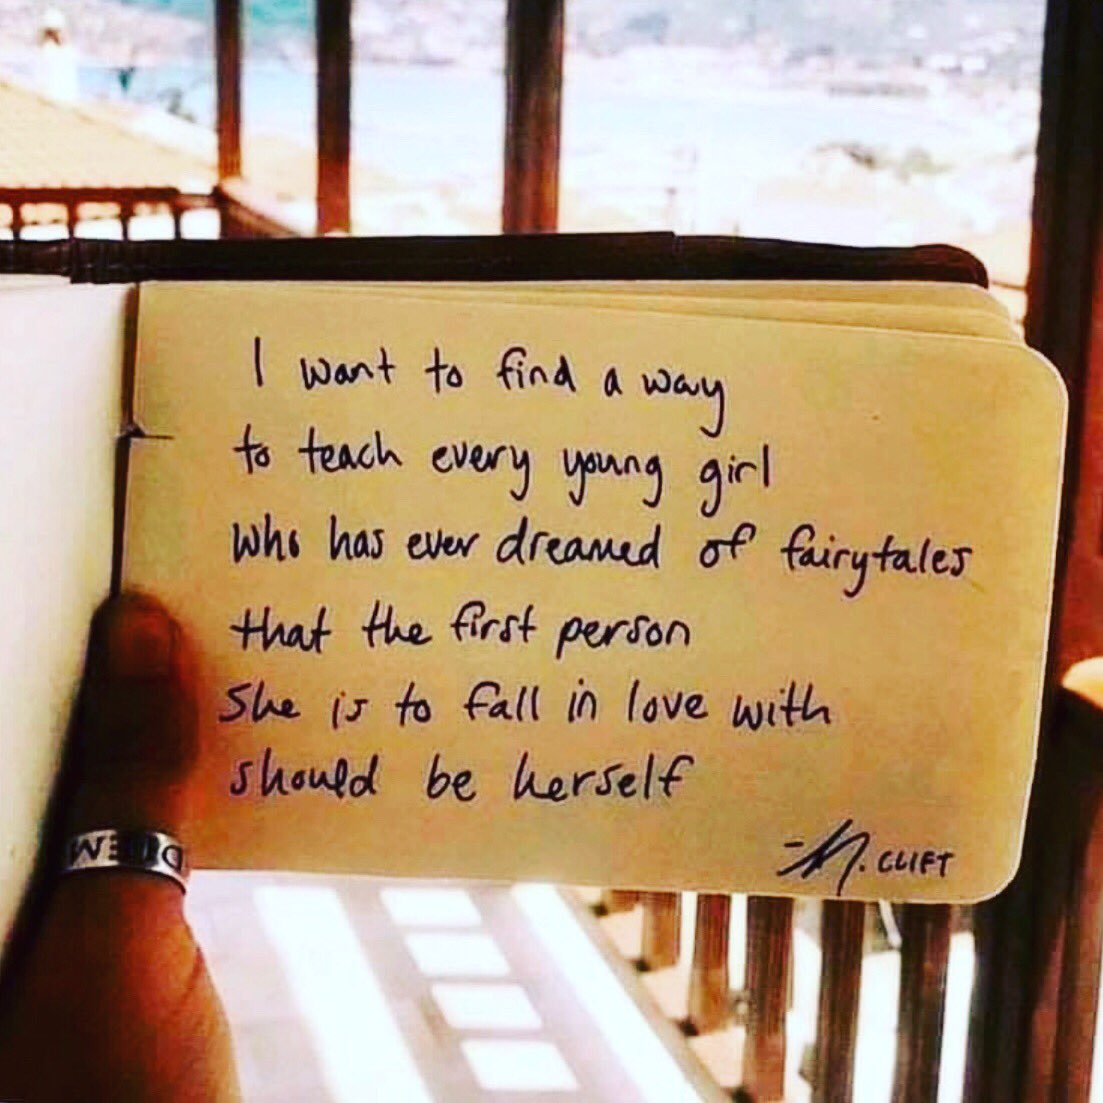 I want to find a way
to teach every young girl
who has ever dreamed of fairytales
that the first person
she is to fall in love with
should be herself
CLIFT